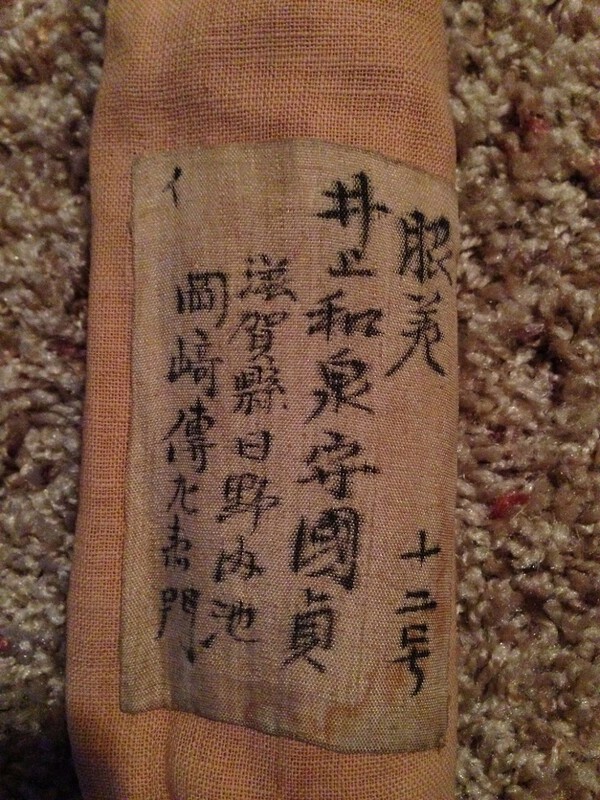 脇差 十二号
井上和泉守國貞
滋賀縣日野内池
岡崎傳九門
イ